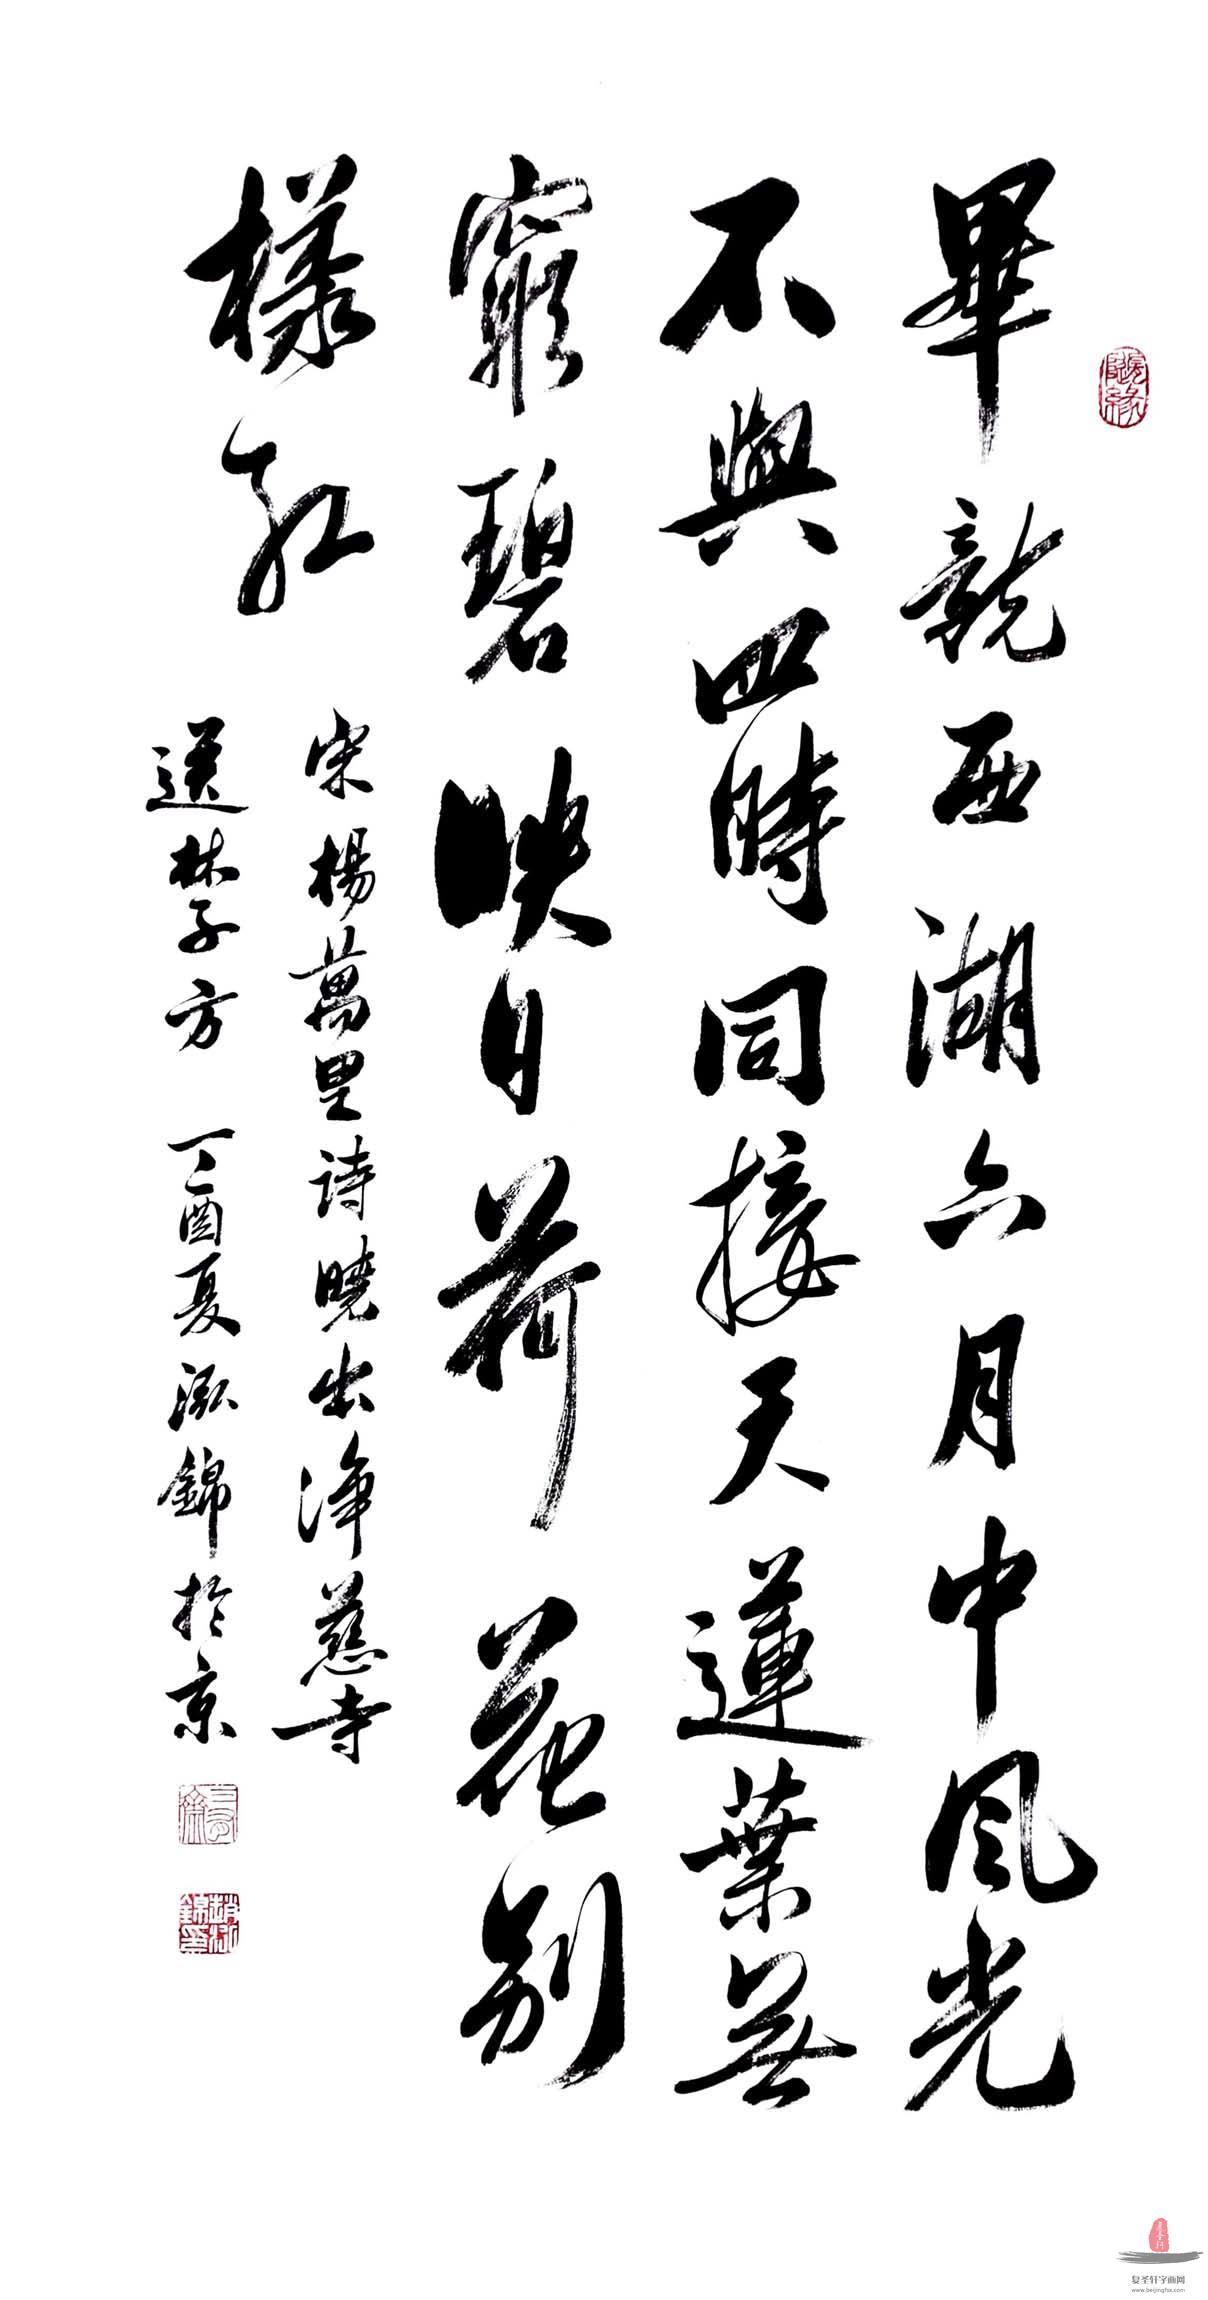 畢竟西湖六月中風光
不與四時同接天蓮葉無
窮碧映日荷花別
樣紅
宋楊萬里詩曉出淨慈寺
送林子方 丁酉夏泓錦於京
隨緣
复圣轩字画网
www.beijingfsx.com